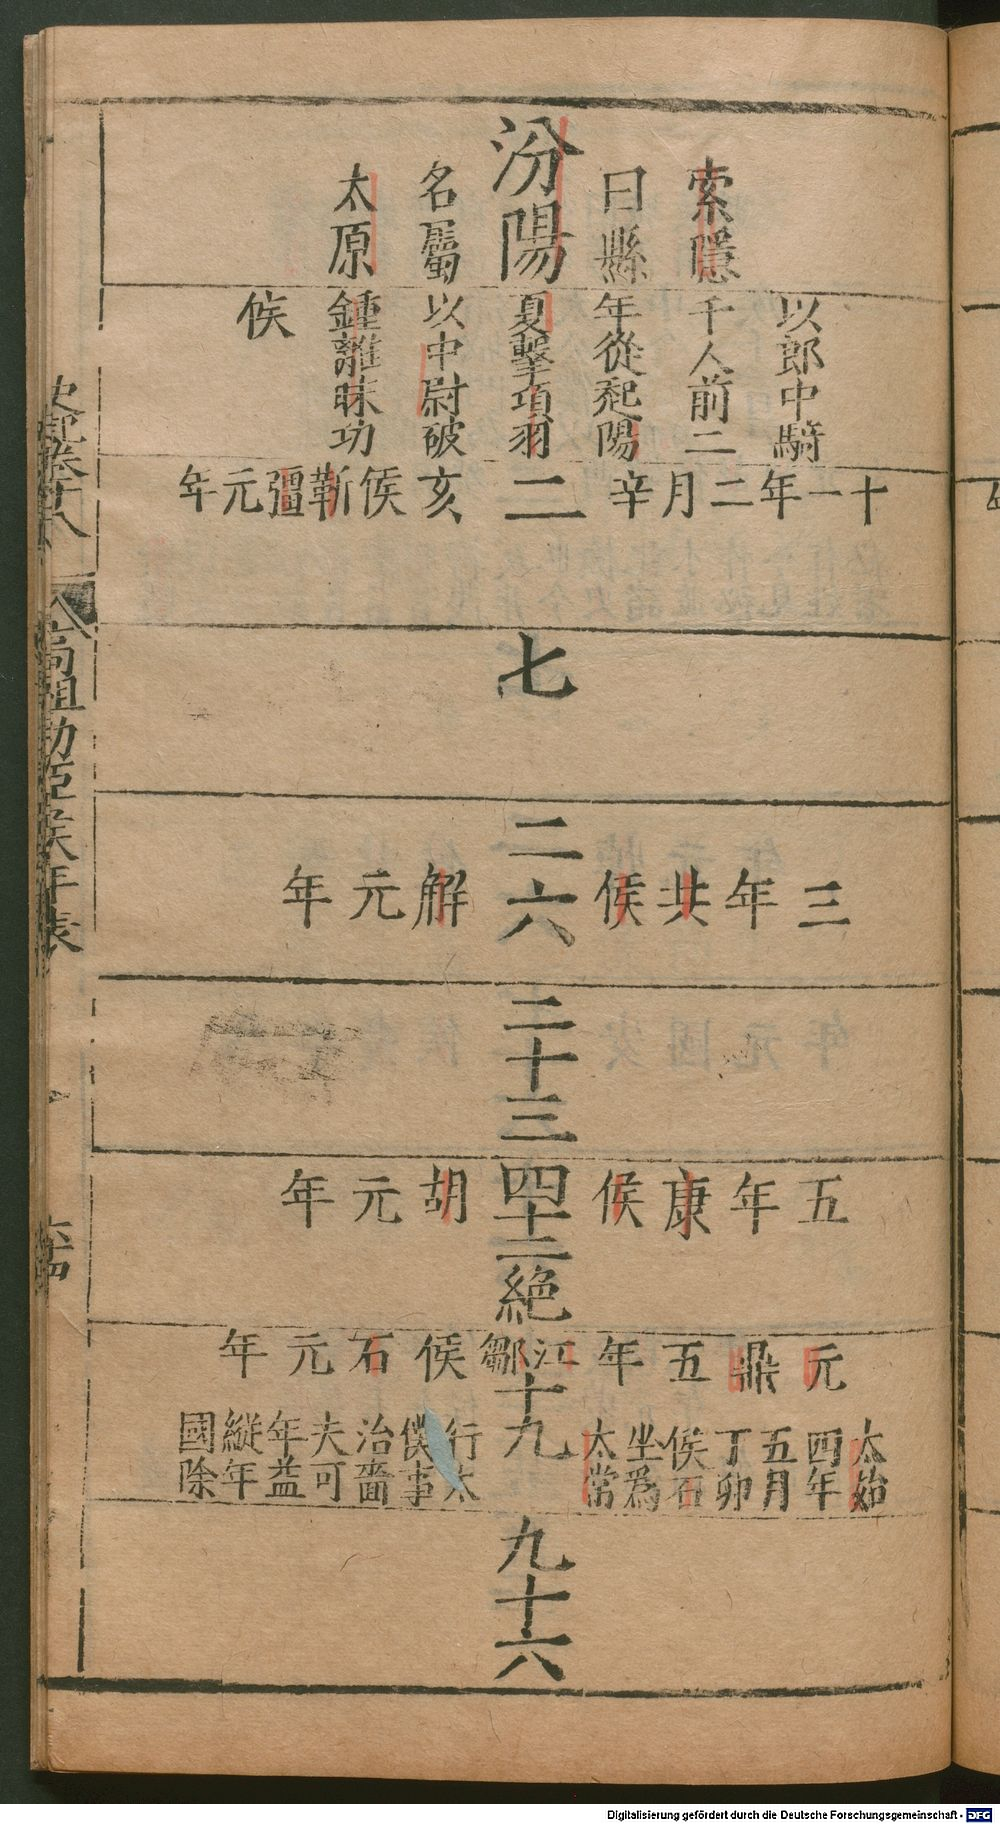 索隱
曰縣
汾陽
名屬
太原
以郎中騎
千人前二
年從起陽
夏擊項羽
以中尉破
鍾離眛功
侯
十一年二月辛
二
亥侯靳彊元年
七
三年共侯
二六
解元年
二十三
五年康侯
四十二絕
胡元年
元鼎五年
江鄒
十九
侯石元年
太始
四年
五月
丁卯
侯石
坐爲
太常
行太
僕事
治嗇
夫可
年益
縱年
國除
九十六
史記卷十八
高祖功臣侯年表
Digitalisierung gefördert durch die Deutsche Forschungsgemeinschaft - DFG